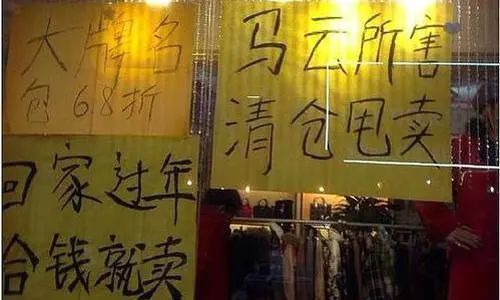 大牌名
包68折
马云所害
清仓甩卖
回家过年
给钱就卖